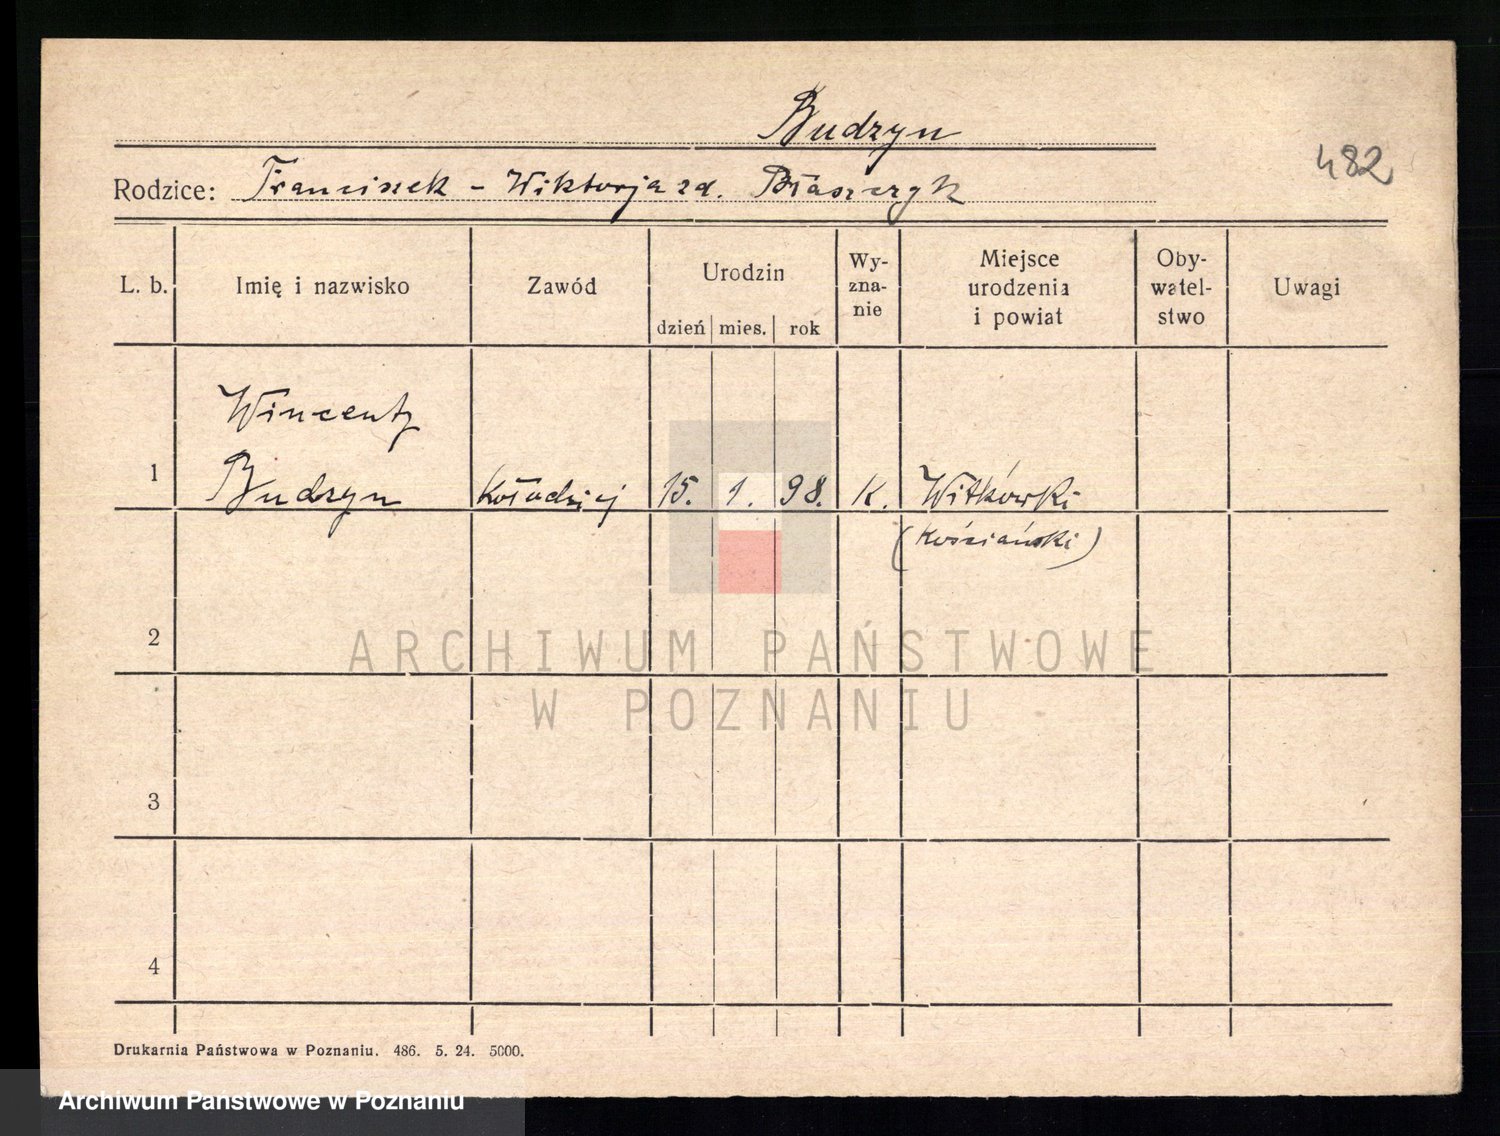 Budzyn
482
Rodzice: Franciszek - Wiktorja zd. Błaszczyk
L. b. Imię i nazwisko Zawód Urodzin dzień mies. rok Wy-zna-nie Miejsce urodzenia i powiat Oby-watel-stwo Uwagi
Wincenty
1 Budzyn Kołodziej 15. 1. 98. K. Witkówki
(Kościański)
2
ARCHIWUM PAŃSTWOWE
W POZNANIU
3
4
Drukarnia Państwowa w Poznaniu. 486. 5. 24. 5000.
Archiwum Państwowe w Poznaniu